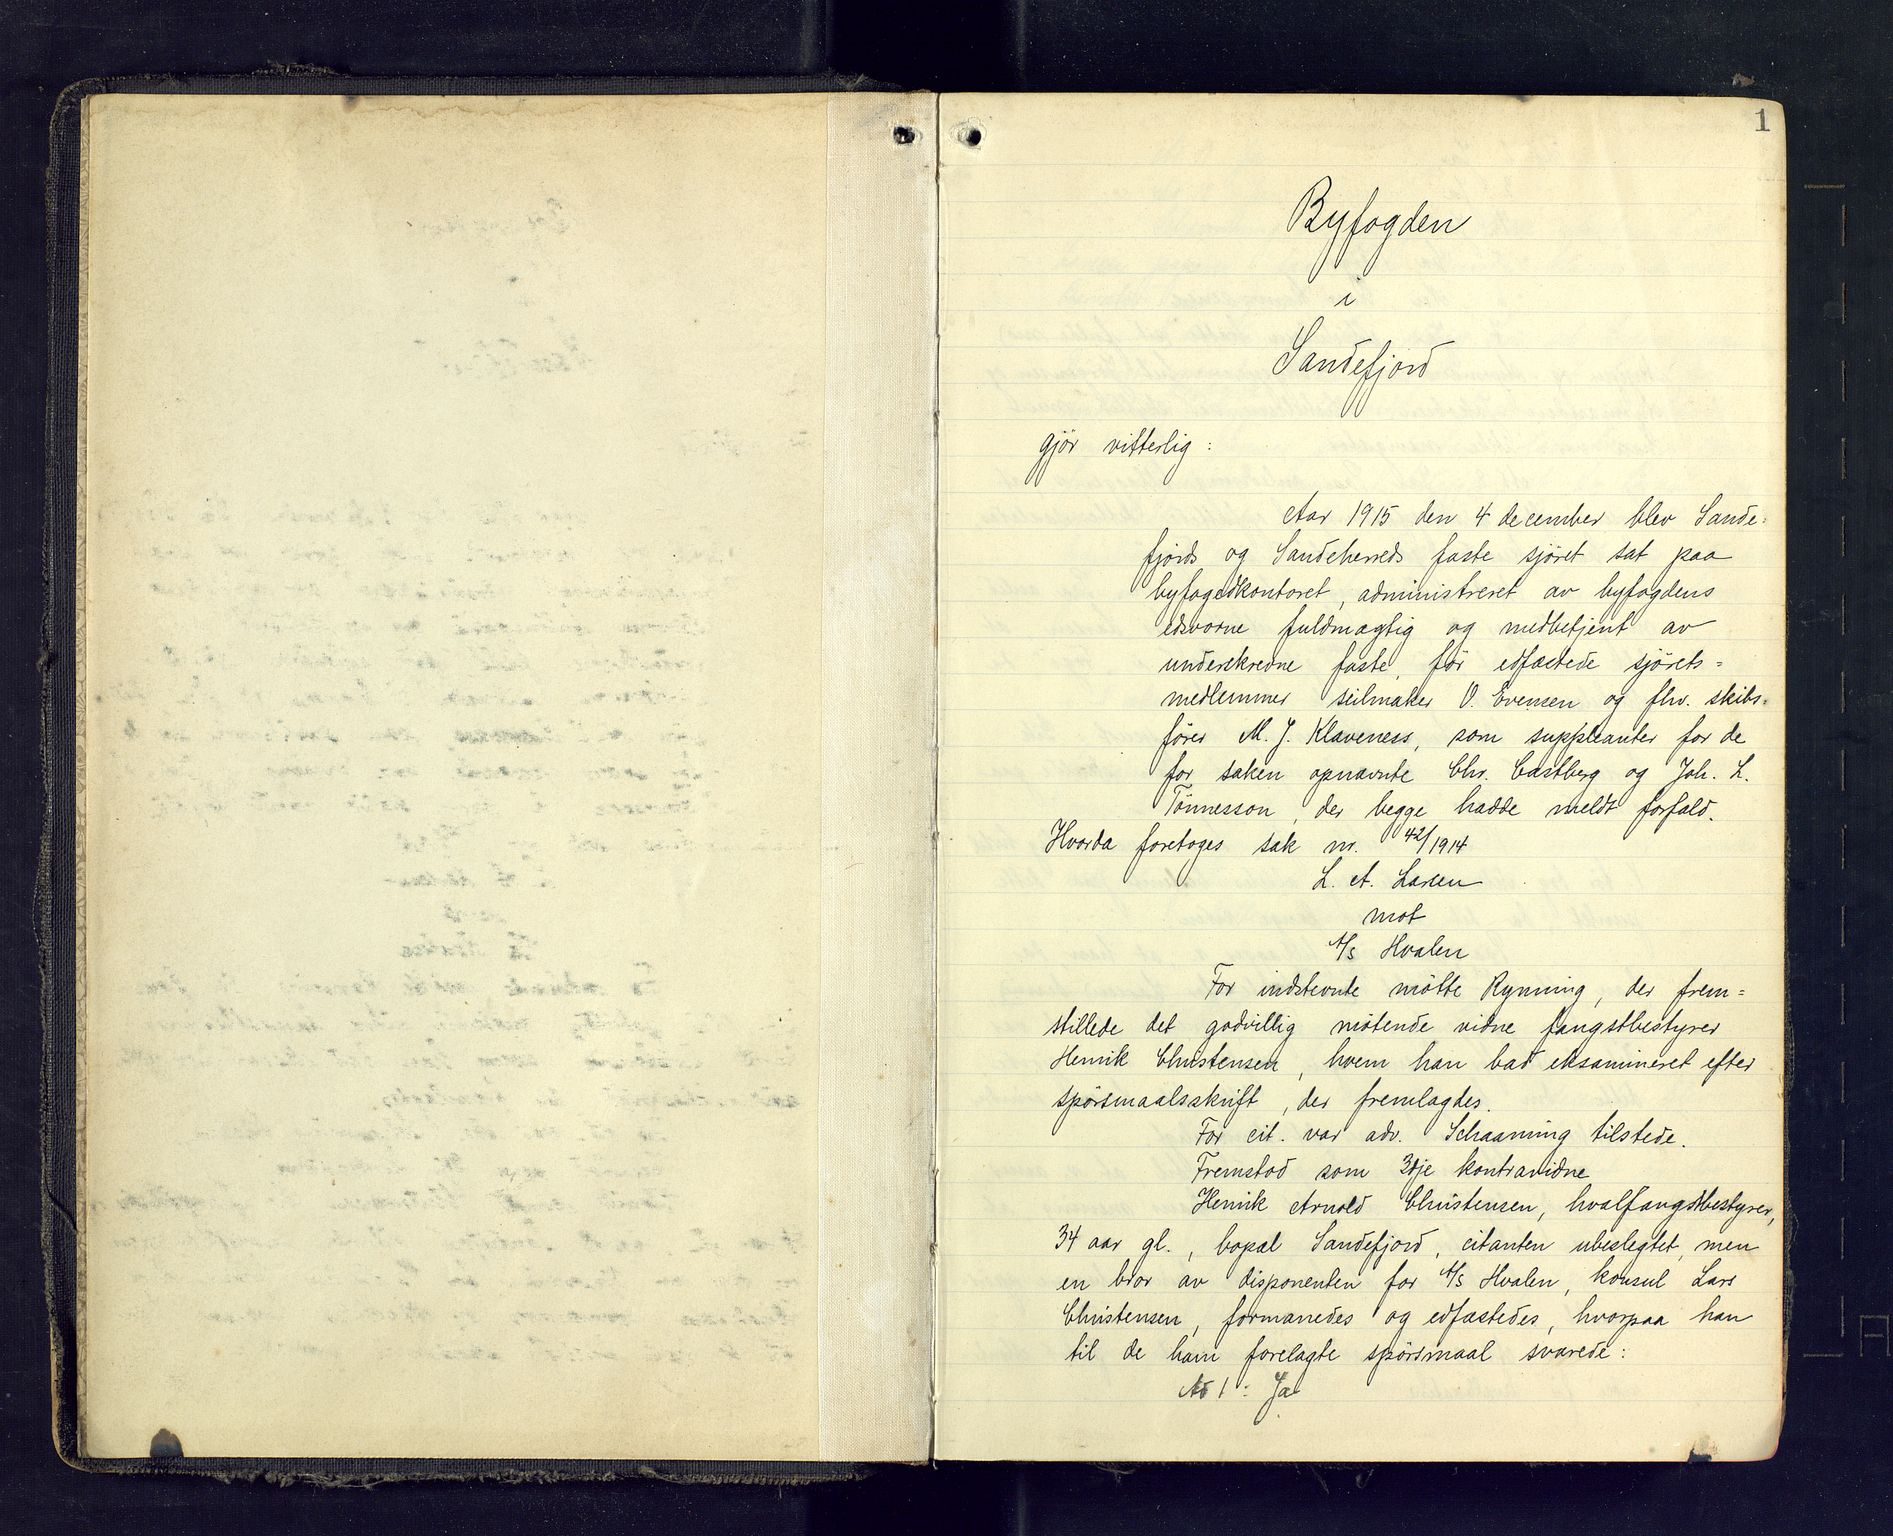 1
Byfogden
i
Sandefjord
gjør vitterlig:
Aar 1915 den 4 december blev Sande-
fjords og Sandeherreds faste sjøret sat paa
byfogedkontoret, administreret av byfogdens
edsvorne fuldmægtig og medbetjent av
underskrevne faste, før edfæstede sjørets-
medlemmer seilmaker O. Evensen og fhv. skibs-
fører M. J. Klaveness, som suppleanter for de
for saken opnævnte Chr. Castberg og Joh. L.
Tønnesson, der begge hadde meldt forfald.
Hvorda foretoges sak nr. 42/1914
L. A. Larsen
mot
A/s Hvalen
For indstevnte møtte Rynning, der frem-
stillede det godvillig møtende vidne fangstbestyrer
Henrik Christensen, hvem han bad eksamineret efter
spørsmaalsskrift, der fremlagdes.
For cit. var adv. Schaanning tilstede.
Fremstod som 3dje kontravidne
Henrik Arnold Christensen, hvalfangstbestyrer,
34 aar gl., bopæl Sandefjord, citanten ubeslegtet, men
en bror av disponenten for A/s Hvalen, konsul Lars
Christensen, formanedes og edfæstedes, hvorpaa han
til de ham forelagte spørsmaal svarede:
Ad 1: Ja